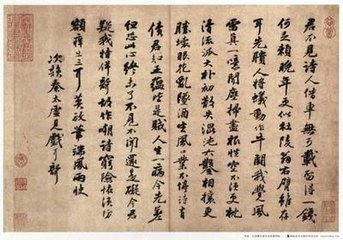 君不見詩人借車無可載留得一錢
何足賴晚年更似杜陵翁右臂雖存
耳先聵人將蟻動作牛鬥我覺風
雷真一噫聞塵掃盡根性空不須更枕
清流派大朴初散失混沌六鑿相攘更
勝壞眼花亂墜酒生風口業不停詩有
債君知五蘊皆是賊人生一病今先差
但恐此心終未了不見不聞還是礙今君
疑我特佯聾故作嘲詩窮險怪須防
額癢出三耳莫放筆端風雨快
次韻秦太虛見戲耳聾